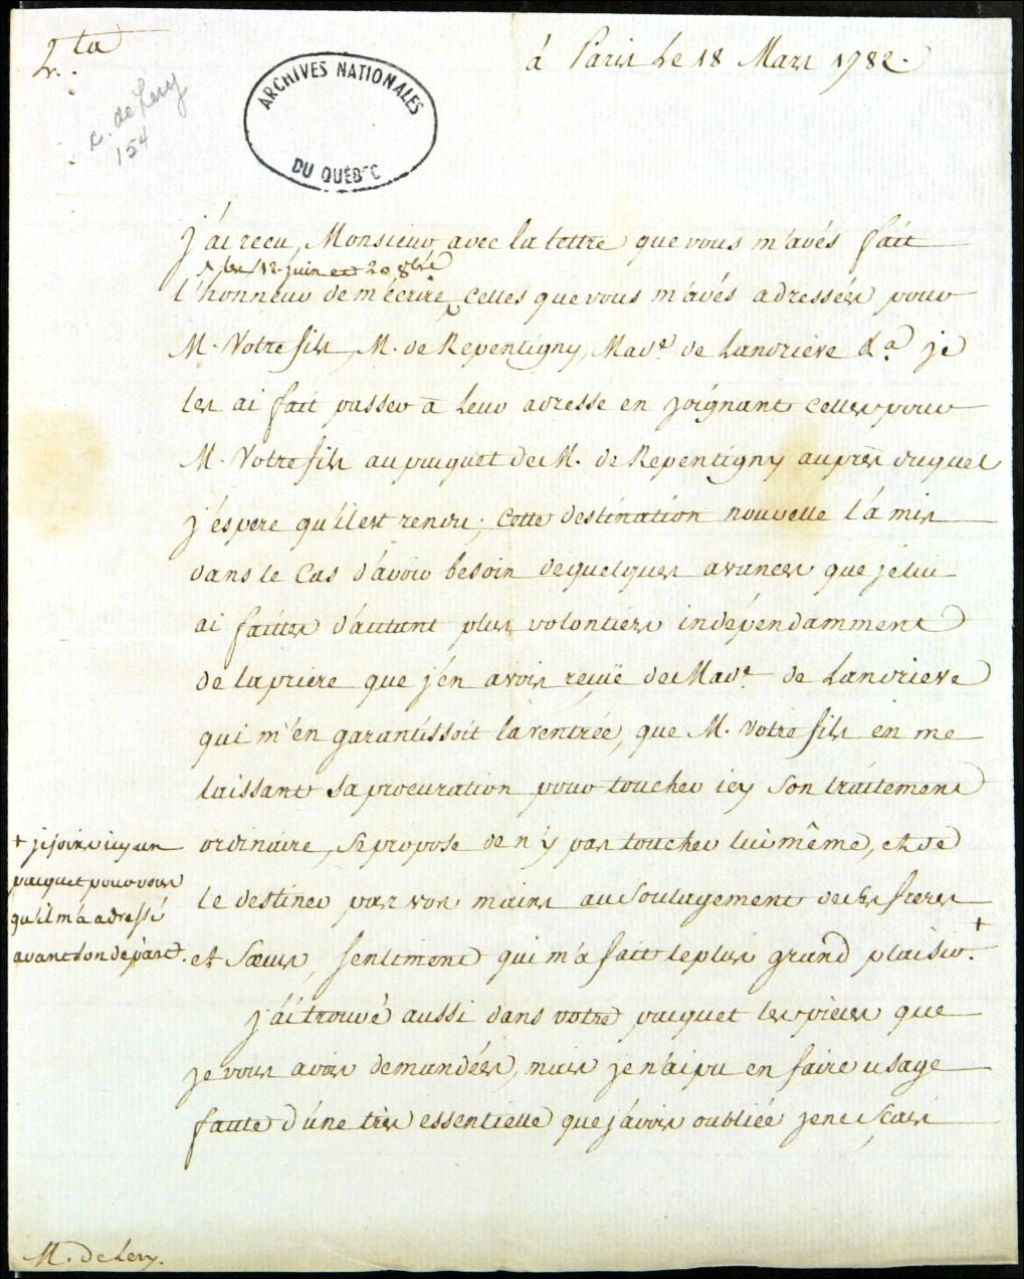 2.ta
à Paris le 18 Mars 1782.
c. de Lery
154
ARCHIVES NATIONALES
DU QUÉBEC
j'ai recu, Monsieur, avec la lettre que vous m'avés fait
les 12 juin et 20 8bre
l'honneur de m'écrire celles que vous m'avés adressées pour
M. Votre fils, M. de Repentigny, Made. de Landriève &a. je
les ai fait passer à leur adresse en joignant celles pour
M. Votre fils au paquet de M. de Repentigny auprès duquel
j'éspere qu'il est rendu; cette destination nouvelle l'á mis
dans le cas d'ávoir besoin de quelques avances que je lui
ai faites d'áutant plus volontiers indépendamment
de la priere que j'én avois reçüe de Made. de Landrieve
qui m'én garantissoit la réntrée, que M. Votre fils en me
laissant sa procuration pour toucher icy son traitement
ordinaire, se propose de n'y pas toucher lui même, et de
le destiner par vos mains au Soulagement de ses freres
et Sœurs, sentiment qui m'á fait le plus grand plaisir. +
+ je joins icy un
paquet pour vous
qu'il m'a adressé
avant son départ.
j'ái trouvé aussi dans votre paquet les pièces que
je vous avois demandées, mais je n'ai pu en faire usage
faute d'úne très essentielle que j'ávois oubliée je ne Sçais
M. de Lery.